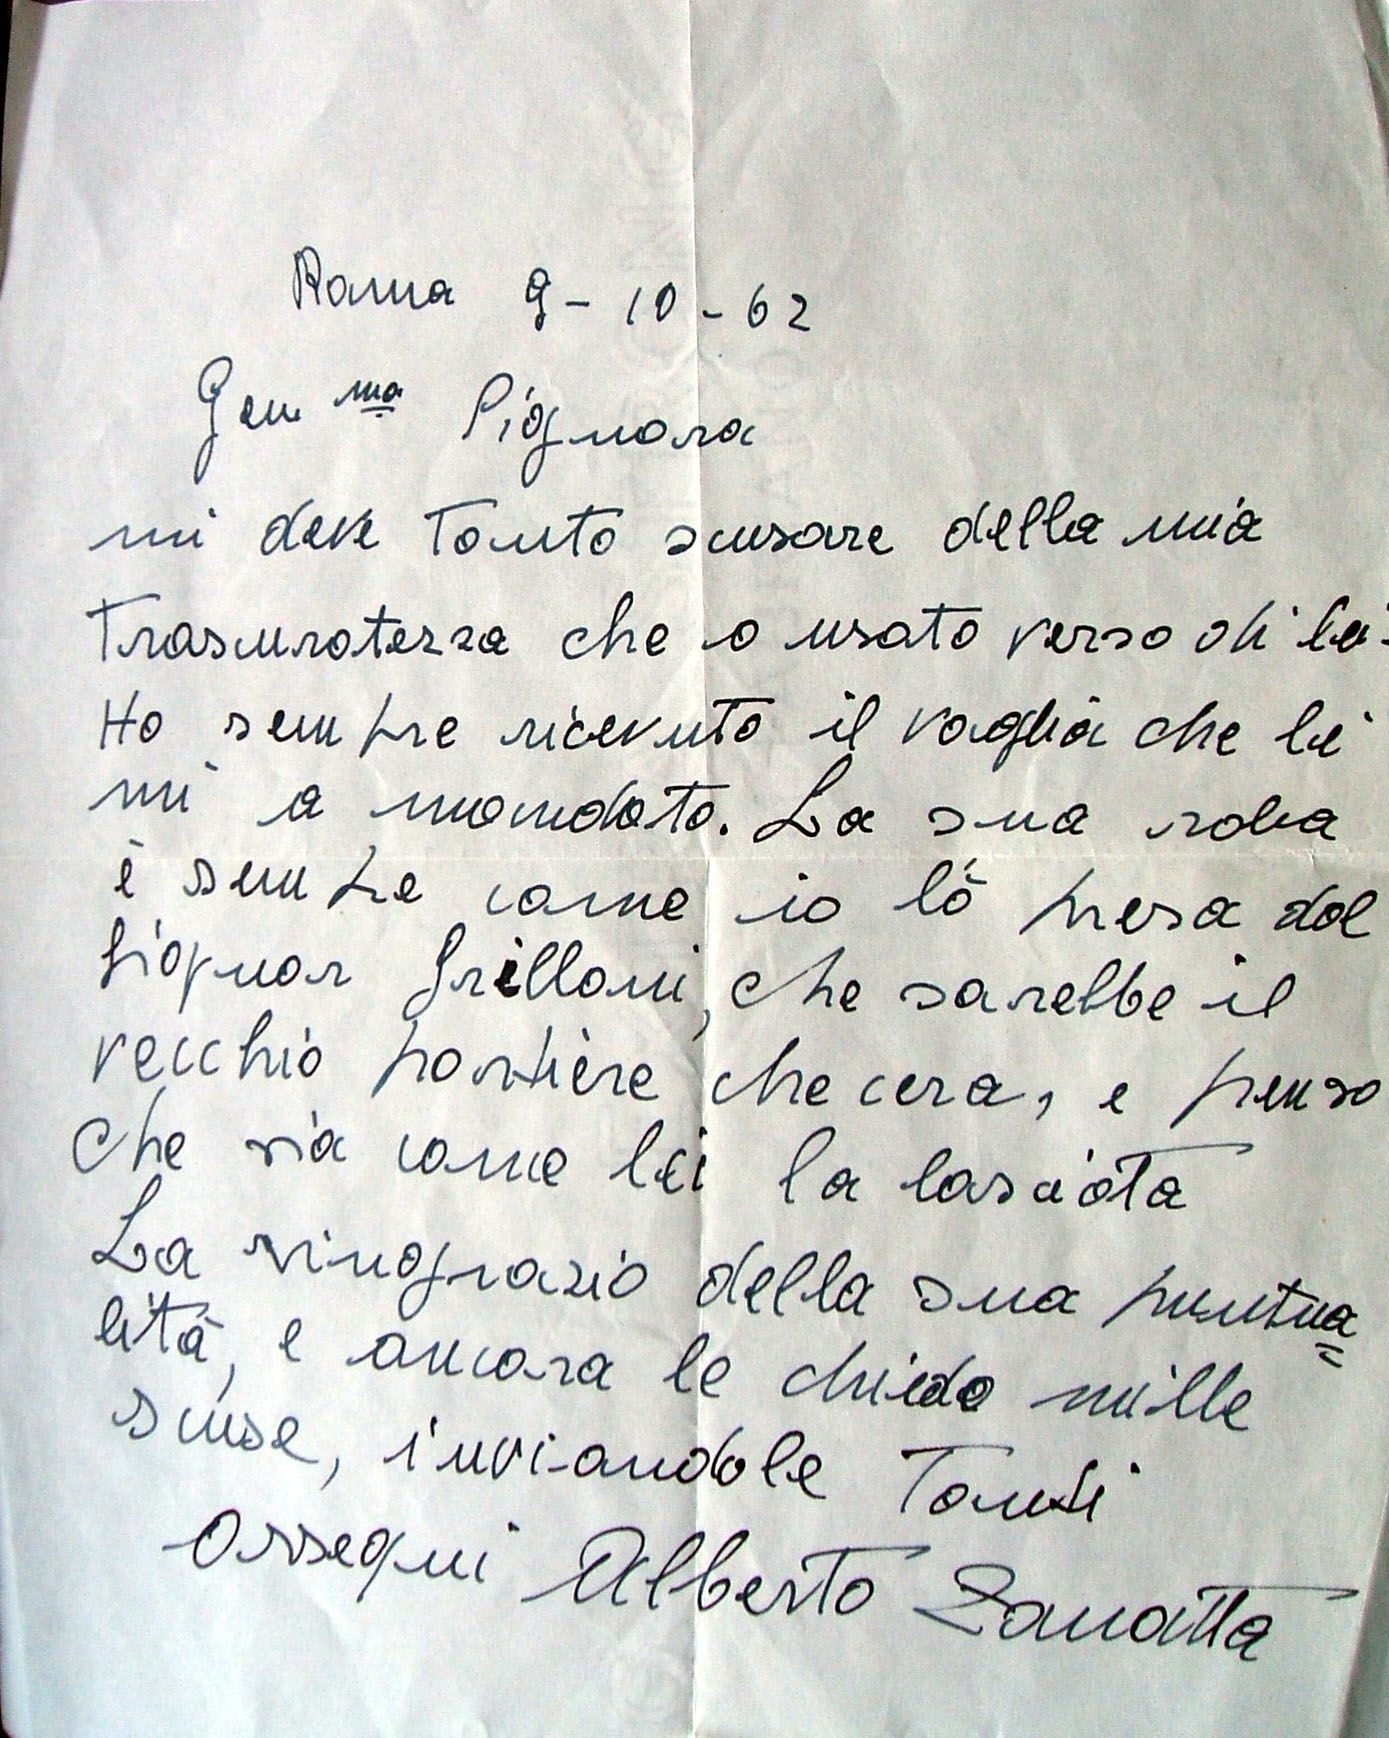 Roma 9-10-62
Gen ma Signora
mi deve tanto scusare della mia
trascuratezza che o usato verso di lei.
Ho sempre ricevuto il vaglia che lei
mi a mandato. La sua roba
è sempre come io lò presa dal
Signor Grilloni, che sarebbe il
vecchio portiere che cera, e penso
che sia come lei la lasciata
La ringrazio della sua puntua=
lità, e ancora le chiedo mille
scuse, inviandole Tanti
Ossequi Alberto Zanatta